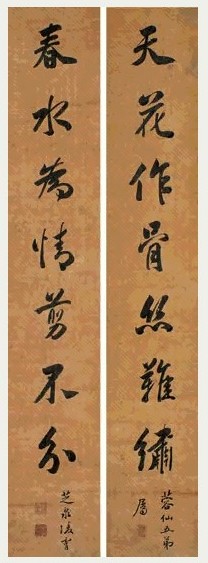 天花作骨丝難繡
蓉仙五弟
屬
春水為情剪不分
芝泉